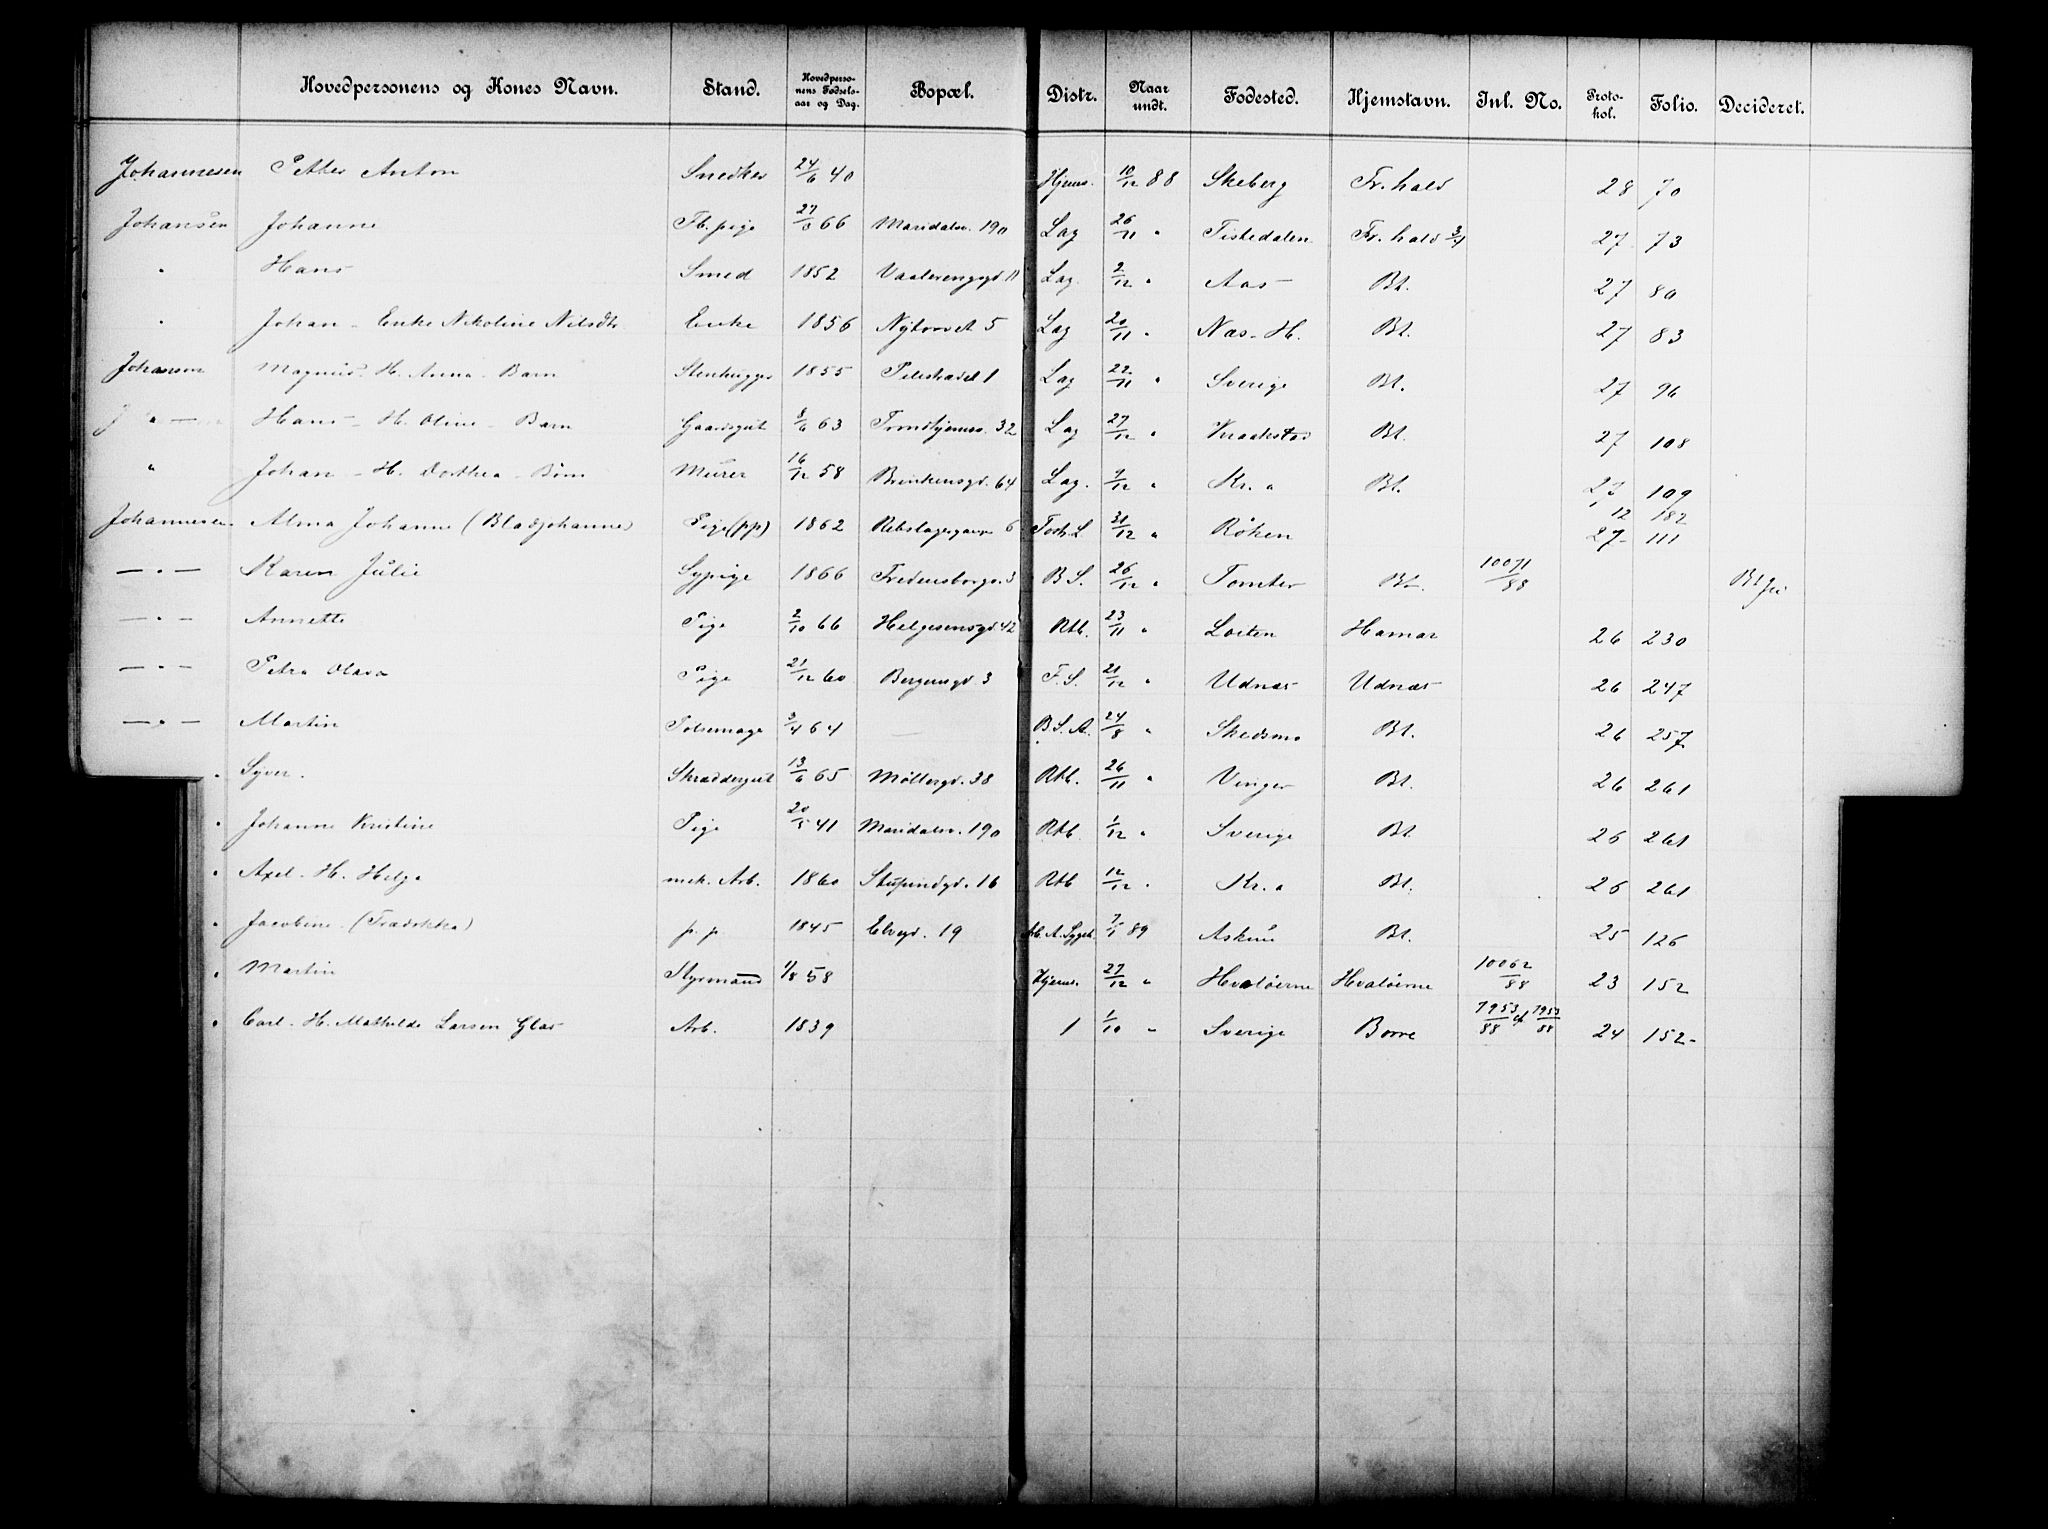 Hovedpersonens og Kones Navn. Stand. Hovedperso-nens Fødsels-aar og Dag. Bopæl. Distr. Naar undt. Fødested. Hjemstavn. Inl. No. Proto-kol. Folio. Decideret.
Johannesen Petter Anton Snedker 24/6 40 Hjems. 10/12 88 Skeberg Fr.hald 28 70
Johansen Johanne Fb.pige 27/8 66 Maridalsv. 190 Lag 26/11 " Tistedalen Fr.hald 3/4 27 73
" Hans Smed 1852 Vaalerengsgd. 11 Lag. 2/12 " Aas Bt. 27 80
" Johan - Enke Nikoline Nilsdtr Enke 1856 Nytorvet 5 Lag 20/11 " Næs - H. Bt. 27 83
Johansen Magnus - H. Anna - Barn Stenhugger 1855 Pilestrædet 1 Lag 22/11 " Sverige Bt. 27 96
" Hans - H. Oline - Barn Gaardsgut 8/6 63 Trondhjemsv. 32 Lag 27/12 " Kraakstad Bt. 27 108
" Johan - H. Dorthea - Børn Murer 16/12 58 Brinkensgd. 64 Lag. 9/12 " Kr.a Bt. 27 109
Johannesen Alma Johanne (Bladjohanne) Pige (pp) 1862 Rebslagergaden 6 31/12 " Røken 12 182 27 111
— " — Karen Julie Sypige 1866 Fredensborgv. 3 B S. 26/12 " Tomter Bt. 10071/88
— " — Annette Pige 2/10 66 Helgesensgd. 42 Rtb. 23/11 " Løiten Hamar 26 230
— " — Petra Olava Pige 21/12 60 Bergensgd. 3 F. S. 21/12 " Udnæs Udnæs 26 247
— " — Martin Pølsemager 3/4 64 — B. S. A. 24/8 " Skedsmo Bt. 26 257
" Syver. Skræddergut 13/6 65 Møllergd. 38 Rtb. 26/11 " Vinger Bt. 26 261
" Johanne Kristine Pige 20/5 41 Maridalsv. 190 Rtb. 1/12 " Sverige Bt. 26 261
" Axel - H. Helga mek. Arb. 1860 Stupindgd. 16 Rtb 12/12 " Kr.a Bt. 26 261
" Jacobine (Trædokka) p. p 1845 Elvegd. 19 7/1 89 Askim Bt. 25 126
" Martin Styrmand 1/8 58 Hjems. 27/12 " Hvaløerne Hvaløerne 10062/88 23 152
" Carl - H. Mathilde Larsen Glas Arb. 1839 1 1/10 " Sverige Borre 7953/88 cf 7953/88 24 152